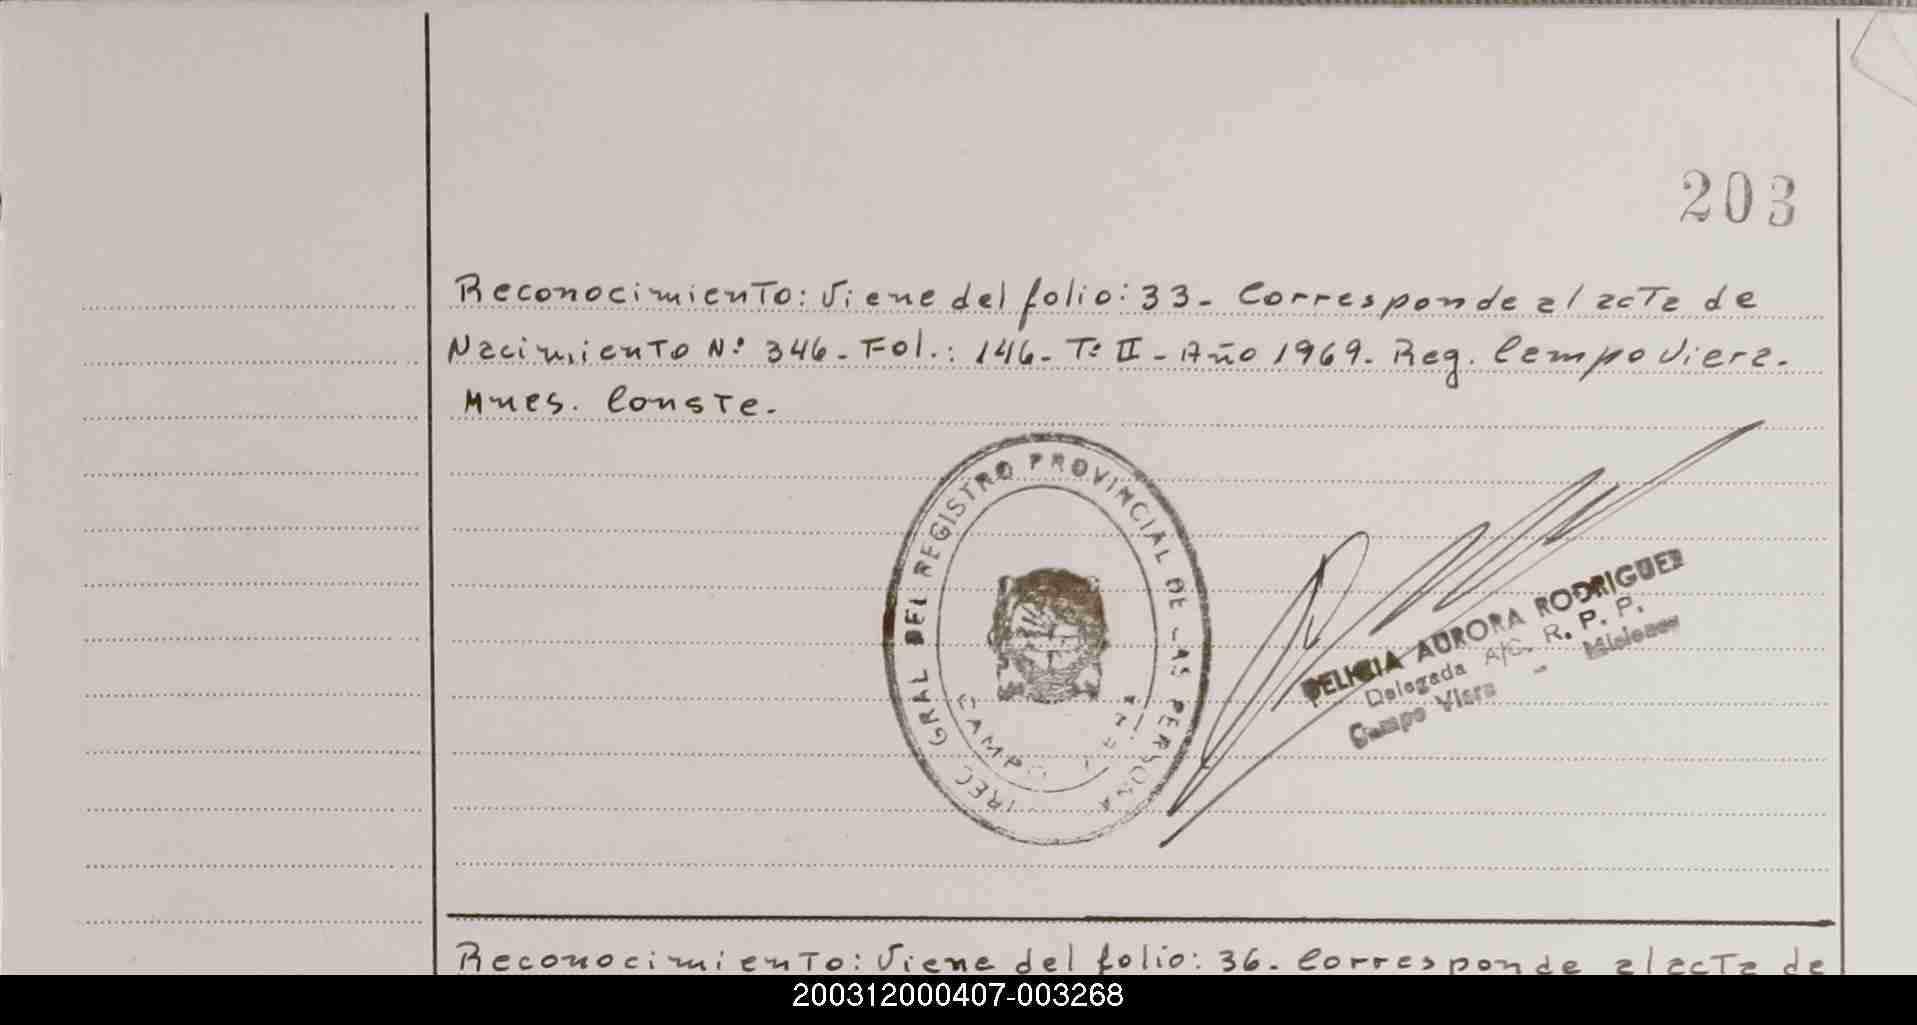 203
Reconocimiento: Viene del folio: 33- Corresponde al acta de
Nacimiento Nº 346- Fol.: 146- Tº II - Año 1969. Reg. Campo Viera-
Mnes. Conste.
DIREC GRAL DEL REGISTRO PROVINCIAL DE LAS PERSONAS
CAMPO VIERA
DELICIA AURORA RODRIGUEZ
Delegada A/C. R. P. P.
Campo Viera - Misiones
Reconocimiento: Viene del folio: 36- Corresponde al acta de
200312000407-003268